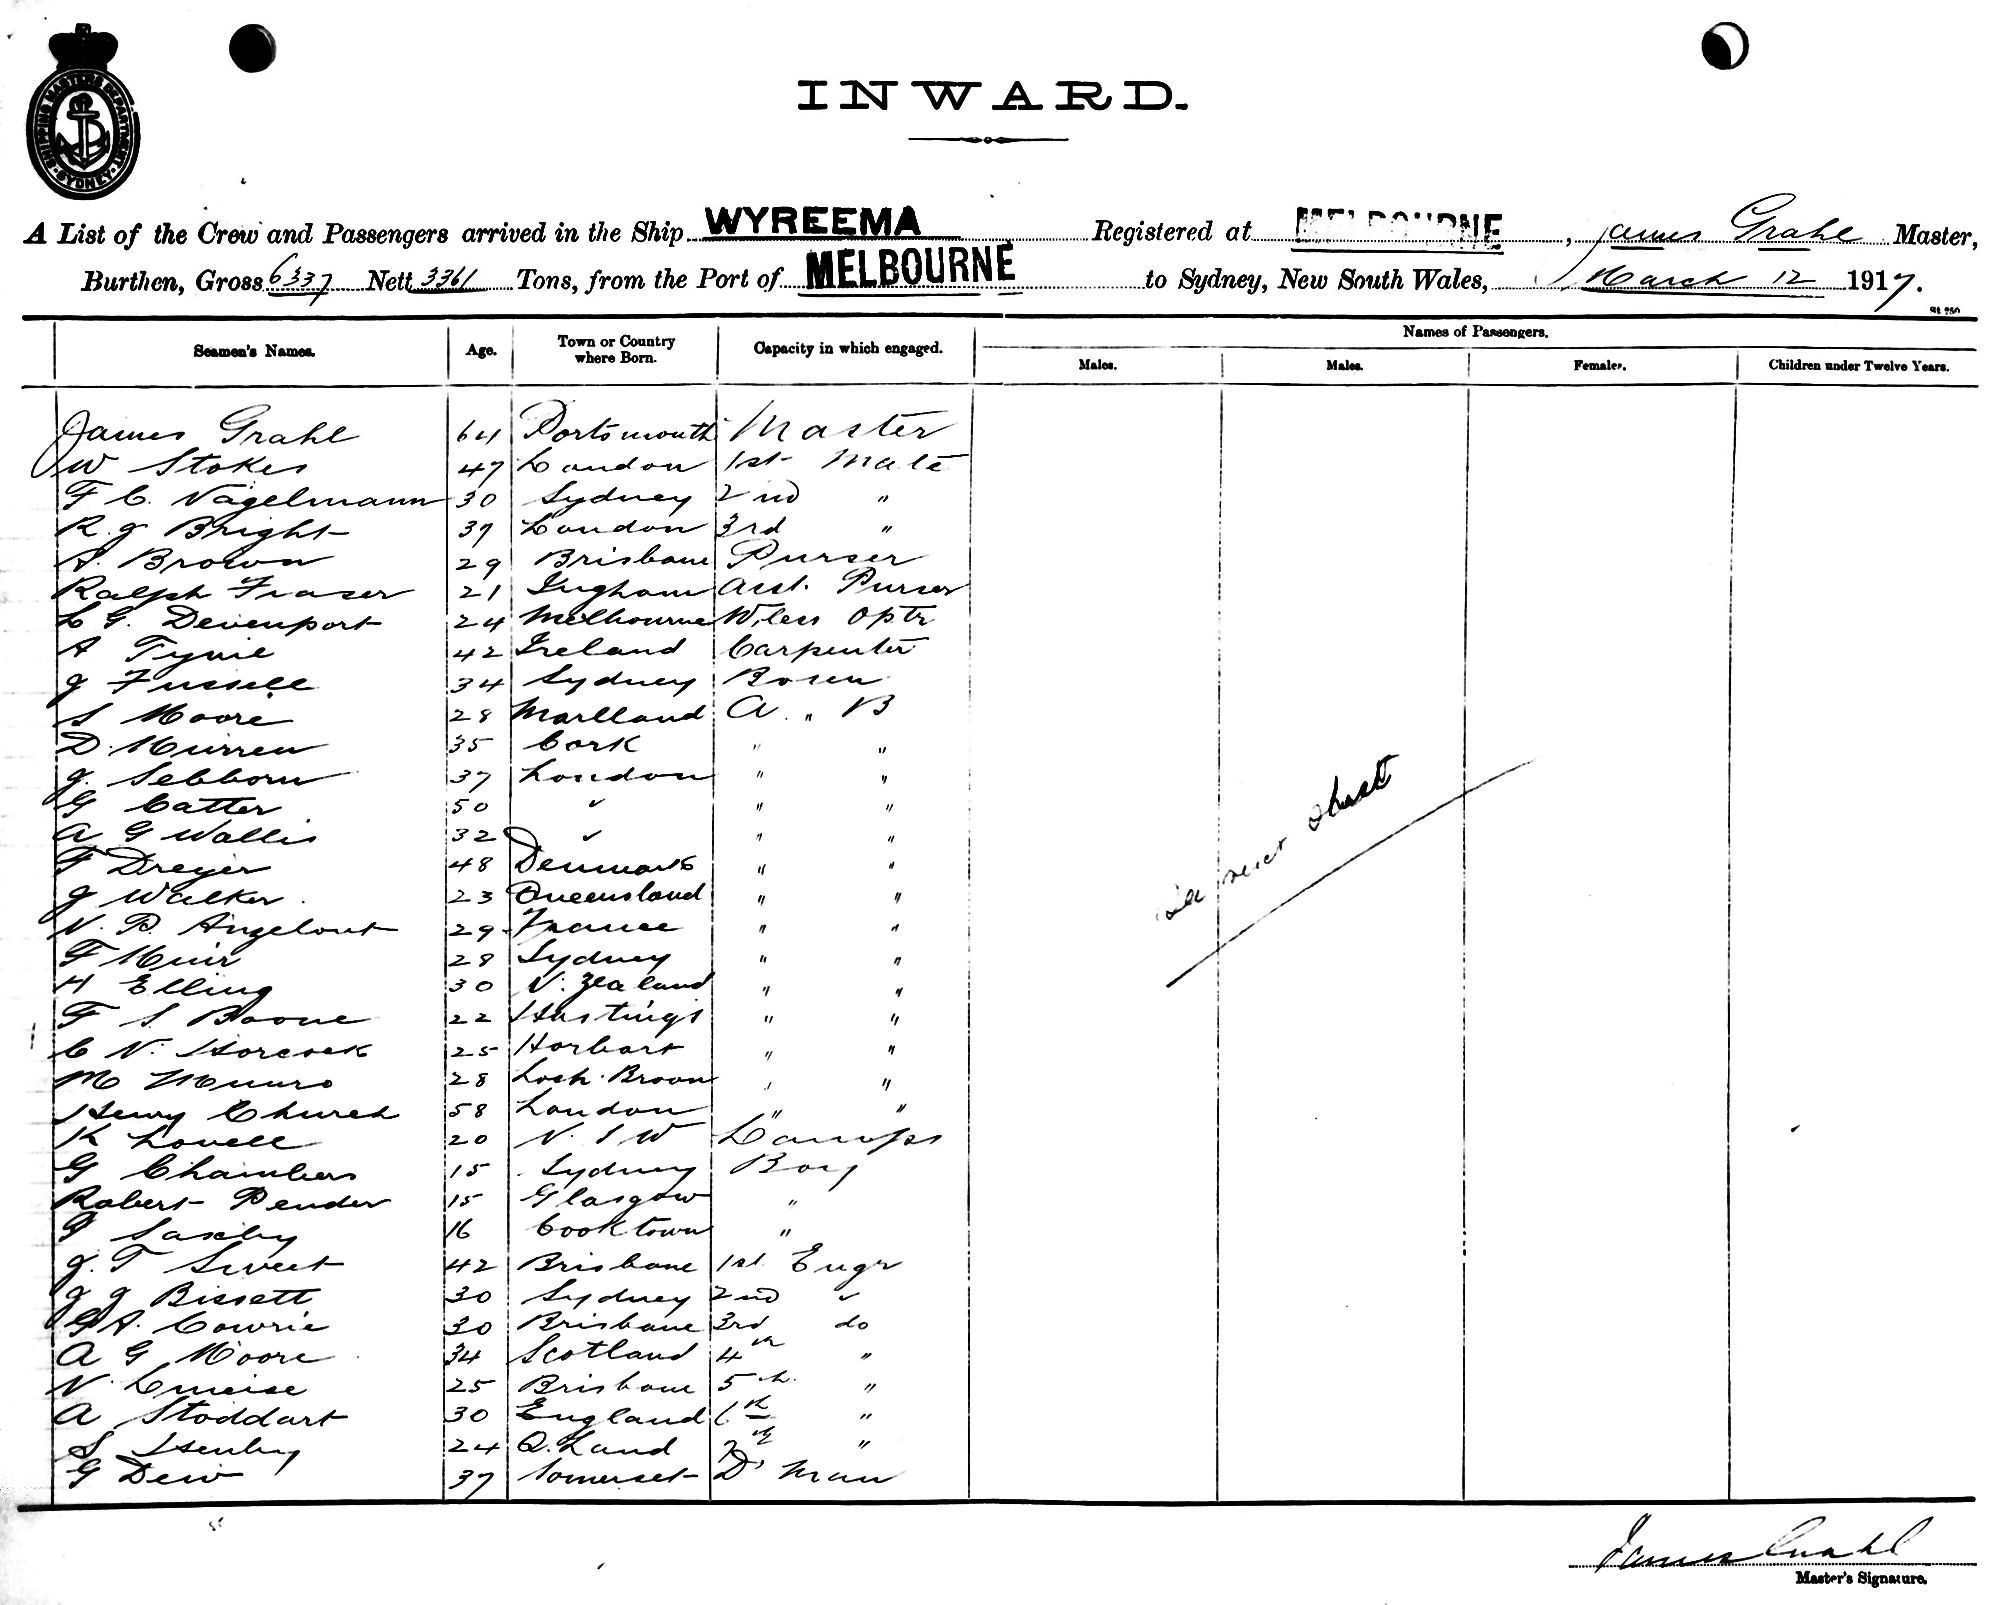 SHIPPING MASTERS DEPARTMENT SYDNEY
INWARD.
A List of the Crew and Passengers arrived in the Ship WYREEMA Registered at MELBOURNE, James Grahl Master,
Burthen, Gross 6337 Nett 3361 Tons, from the Port of MELBOURNE to Sydney, New South Wales, March 12 1917.
Seamen's Names. Age. Town or Country where Born. Capacity in which engaged. Names of Passengers.
Males. Males. Females. Children under Twelve Years.
James Grahl 64 Portsmouth Master
W Stokes 47 London 1st Mate
F C. Nagelmann 30 Sydney 2nd "
R. J Bright 39 London 3rd "
A. Brown 29 Brisbane Purser
Ralph Fraser 21 Ingham Asst. Purser
L G. Devenport 24 Melbourne W. less Optr
A Tyrie 42 Ireland Carpenter
J Fussell 34 Sydney Bosen
S Moore 28 Marlland A " B
D. Murren 35 Cork " "
J. Sebborn 37 London " "
G Catter 50 " " "
A G Wallis 32 " " "
F Dreyer 48 Denmark " "
J Walker 23 Queensland " "
N. P. Angelout 29 France " "
F Muir 28 Sydney " "
H Elling 30 N. Zealand " "
F S Boone 22 Hastings " "
C N. 25 Horbart " "
M Munro 28 Loch. Broom " "
Henry Church 58 London " "
K Lovell 20 N. S W Lamps
G Chambers 15 Sydney Boy
Robert Pender 15 Glasgow "
Saxby 16 Cooktown "
J. T Sweet 42 Brisbane 1st Engr
J J Bissett 30 Sydney 2nd "
G A. Cowrie 30 Brisbane 3rd do
A G Moore 34 Scotland 4th "
N. 25 Brisbane 5th "
A Stoddart 30 England 6th "
S Henley 24 Q. Land 7th "
G Dew 37 Somerset D' Man
sheet
James Grahl
Master's Signature.